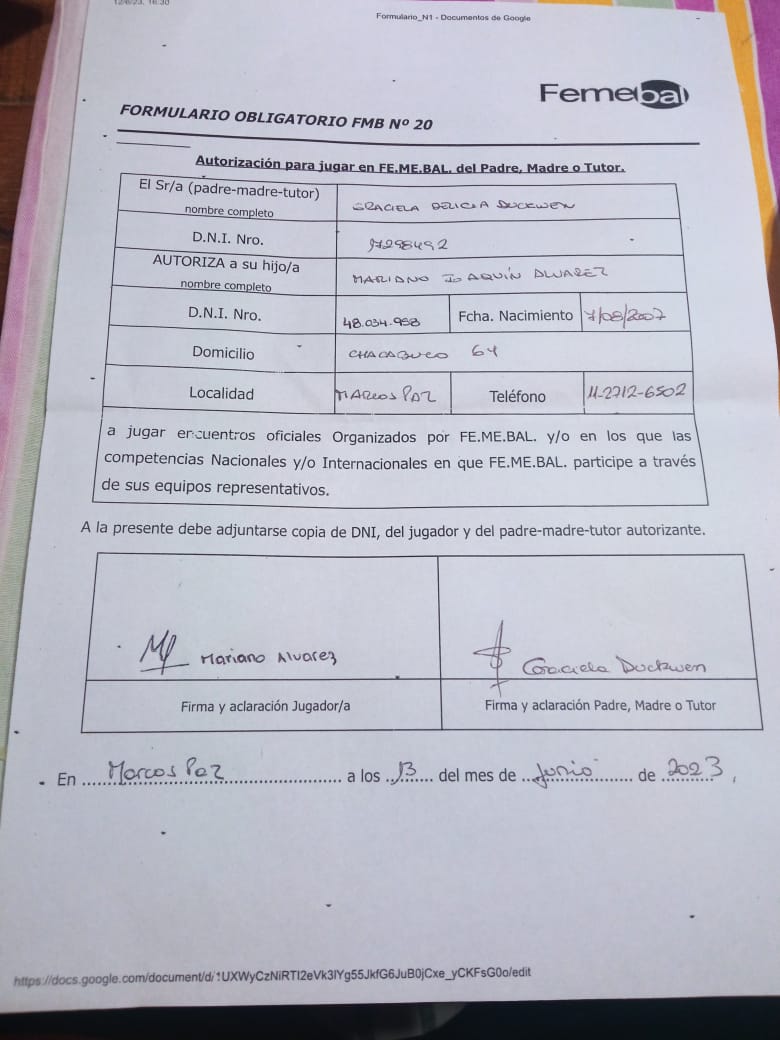 12/6/23, 16:30
Formulario_N1 - Documentos de Google
Femebal
FORMULARIO OBLIGATORIO FMB Nº 20
Autorización para jugar en FE.ME.BAL. del Padre, Madre o Tutor.
El Sr/a (padre-madre-tutor)
nombre completo
GRACIELA DELICIA DUCKWEN
D.N.I. Nro.
AUTORIZA a su hijo/a
nombre completo
MARIANO JOAQUÍN ALVAREZ
D.N.I. Nro. 48.034.988 Fcha. Nacimiento 7/08/2007
Domicilio CHACABUCO 64
Localidad MARCOS PAZ Teléfono 11-2712-6502
a jugar encuentros oficiales Organizados por FE.ME.BAL. y/o en los que las
competencias Nacionales y/o Internacionales en que FE.ME.BAL. participe a través
de sus equipos representativos.
A la presente debe adjuntarse copia de DNI, del jugador y del padre-madre-tutor autorizante.
Mariano Alvarez
Graciela Duckwen
Firma y aclaración Jugador/a
Firma y aclaración Padre, Madre o Tutor
En Marcos Paz a los 13 del mes de Junio de 2023,
https://docs.google.com/document/d/1UXWyCzNiRTl2eVk3lYg55JkfG6JuB0jCxe_yCKFsG0o/edit